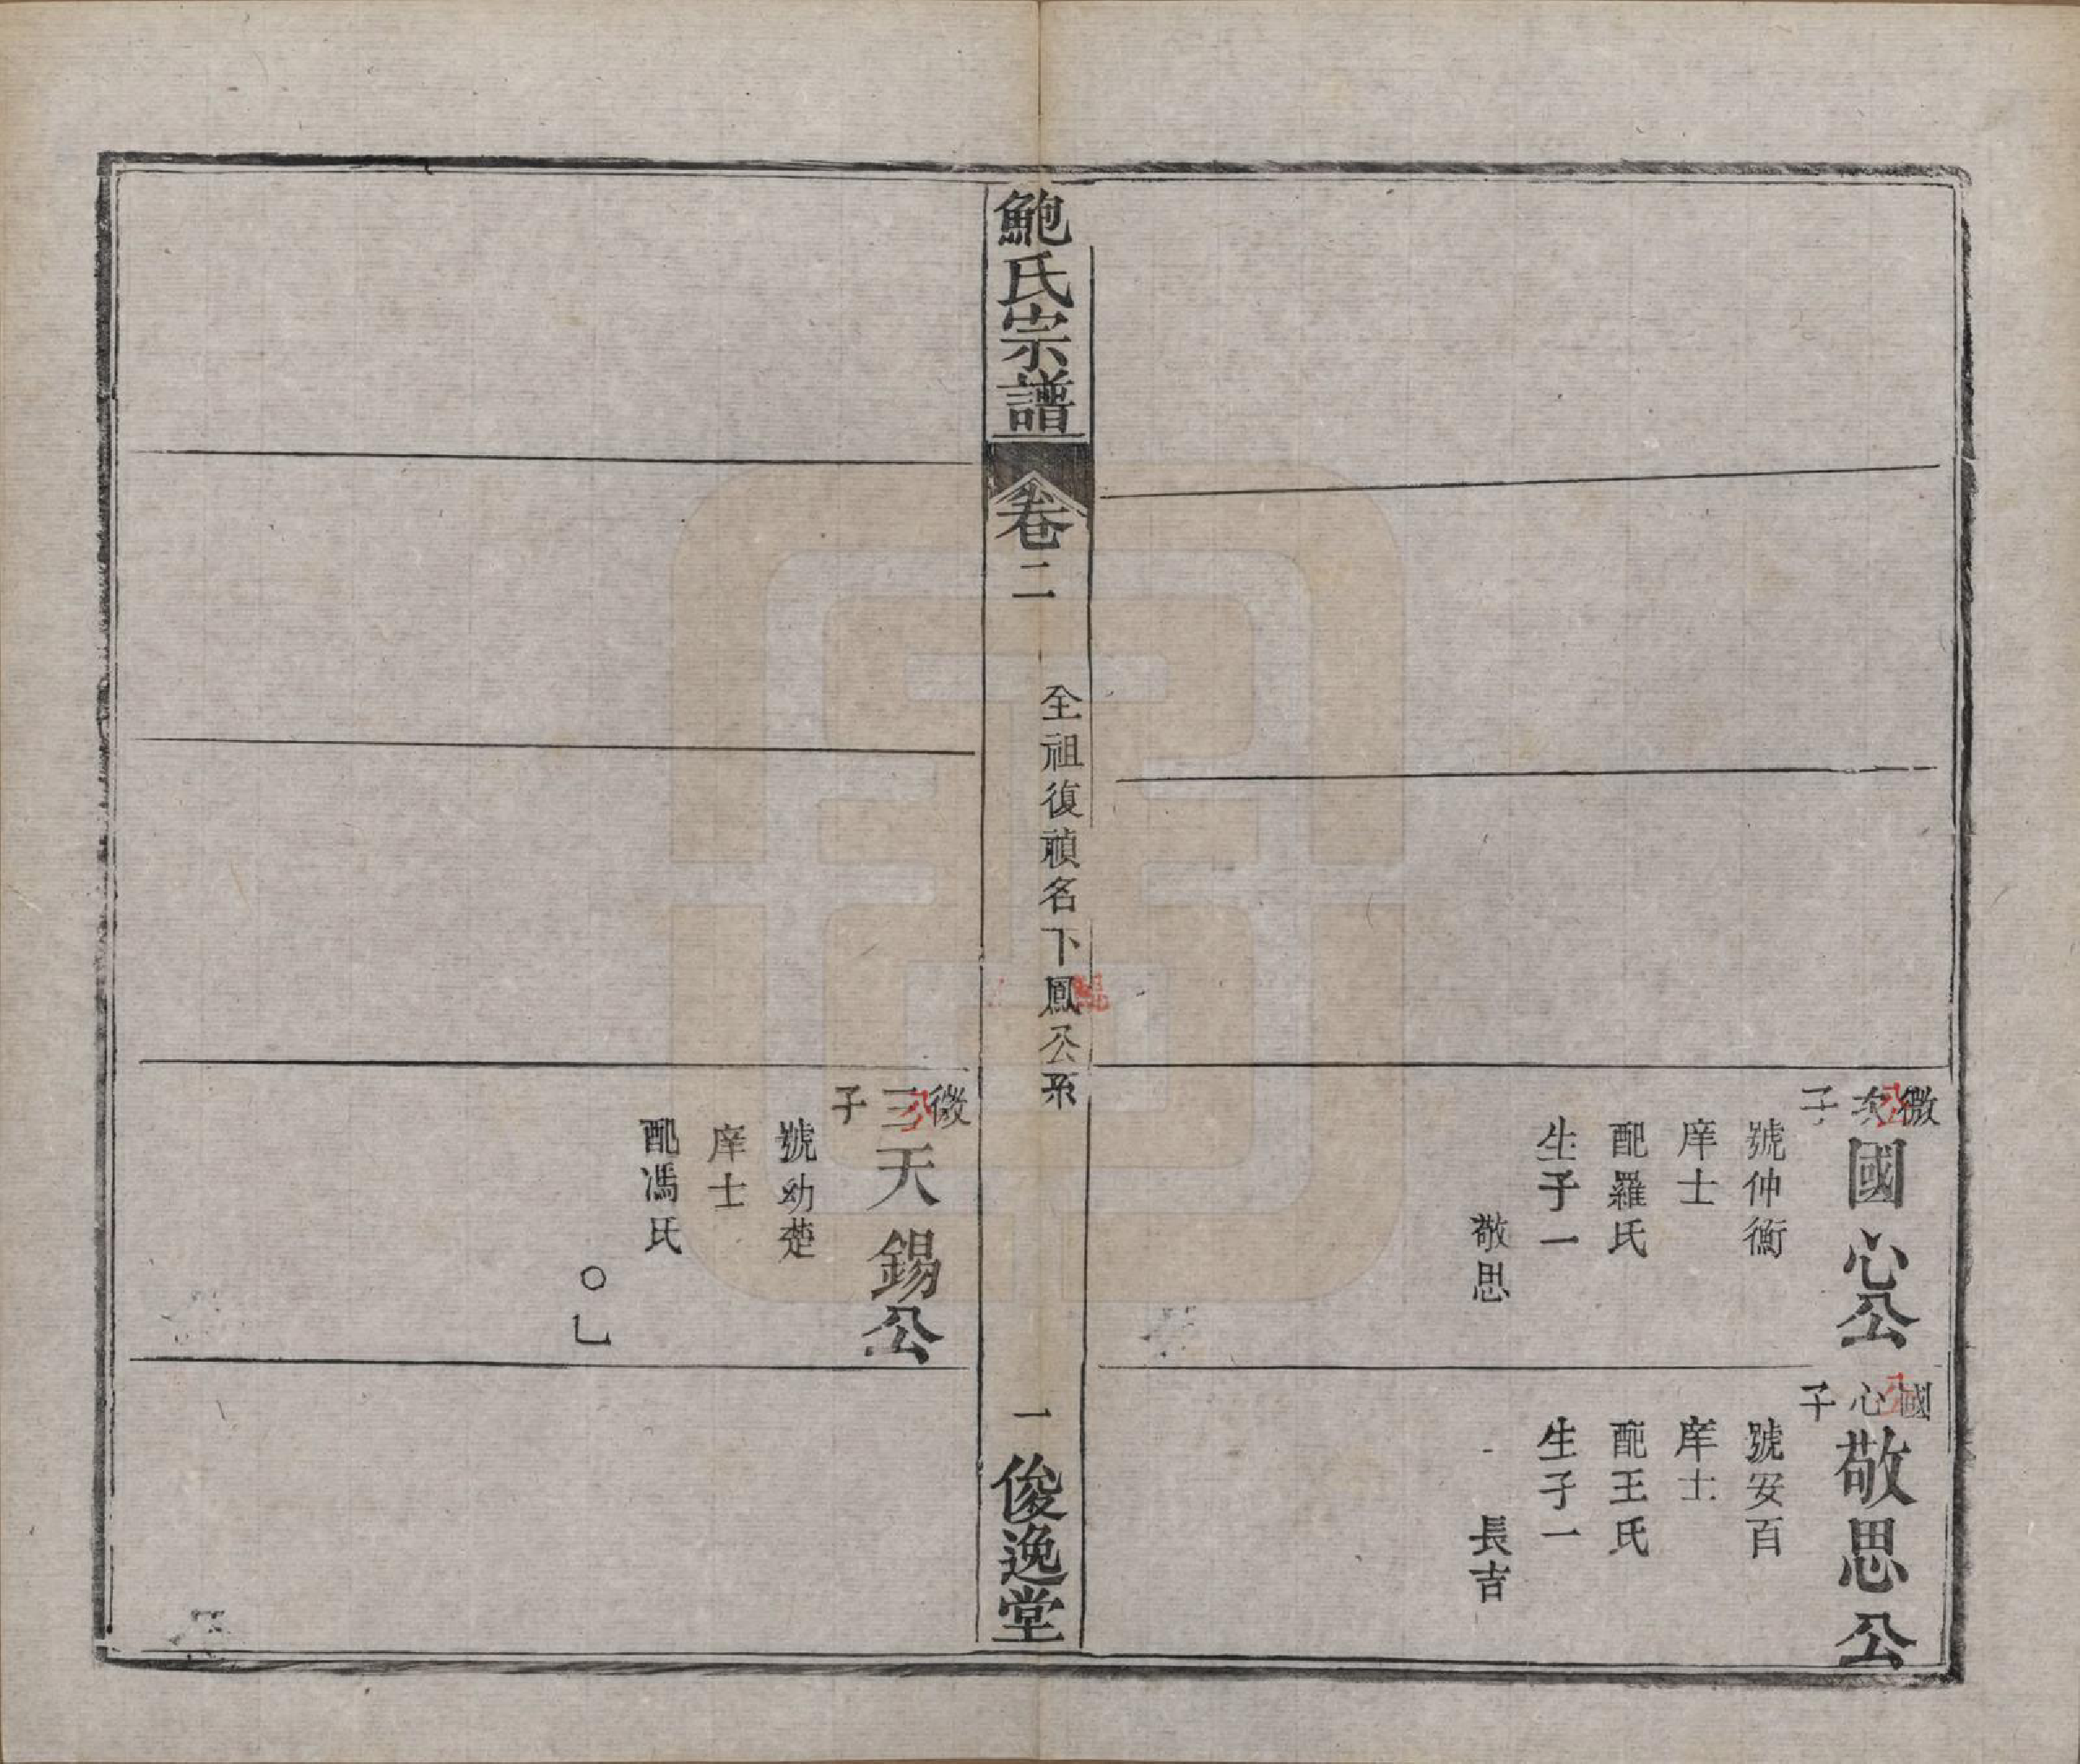 微公次子
國心公
號仲衡
庠士
配羅氏
生子一
敬思
國心公子
敬思公
號安百
庠士
配王氏
生子一
長吉
鮑氏宗譜
卷二
全祖復禎名下鳳公系
一
俊逸堂
微公三子
天錫公
號幼楚
庠士
配馮氏